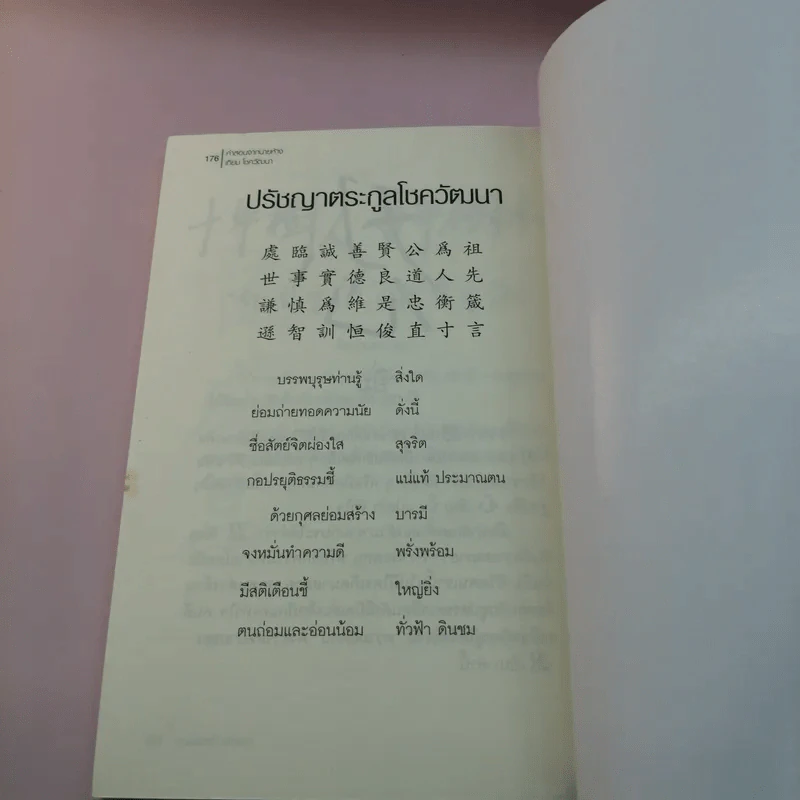 176
คำสอนจากนายห้าง
เทียม โชควัฒนา
ปรัชญาตระกูลโชควัฒนา
祖先箴言
爲人衡寸
公道忠直
賢良是俊
善德維恒
誠實爲訓
臨事慎智
處世謙遜
บรรพบุรุษท่านรู้ สิ่งใด
ย่อมถ่ายทอดความนัย ดั่งนี้
ซื่อสัตย์จิตผ่องใส สุจริต
กอปรยุติธรรมชี้ แน่แท้ ประมาณตน
ด้วยกุศลย่อมสร้าง บารมี
จงหมั่นทำความดี พรั่งพร้อม
มีสติเตือนชี้ ใหญ่ยิ่ง
ตนถ่อมและอ่อนน้อม ทั่วฟ้า ดินชม